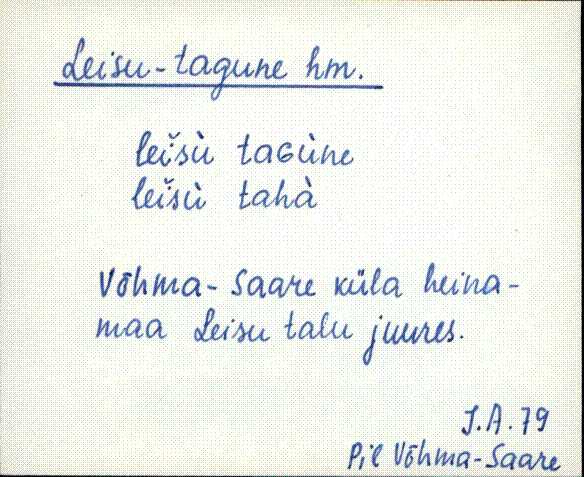 Leisu-tagune hm.
leĭsù taGùne
leĭsù tahà
Võhma-Saare küla heina-
maa Leisu talu juures.
J.A.79
Pil Võhma-Saare